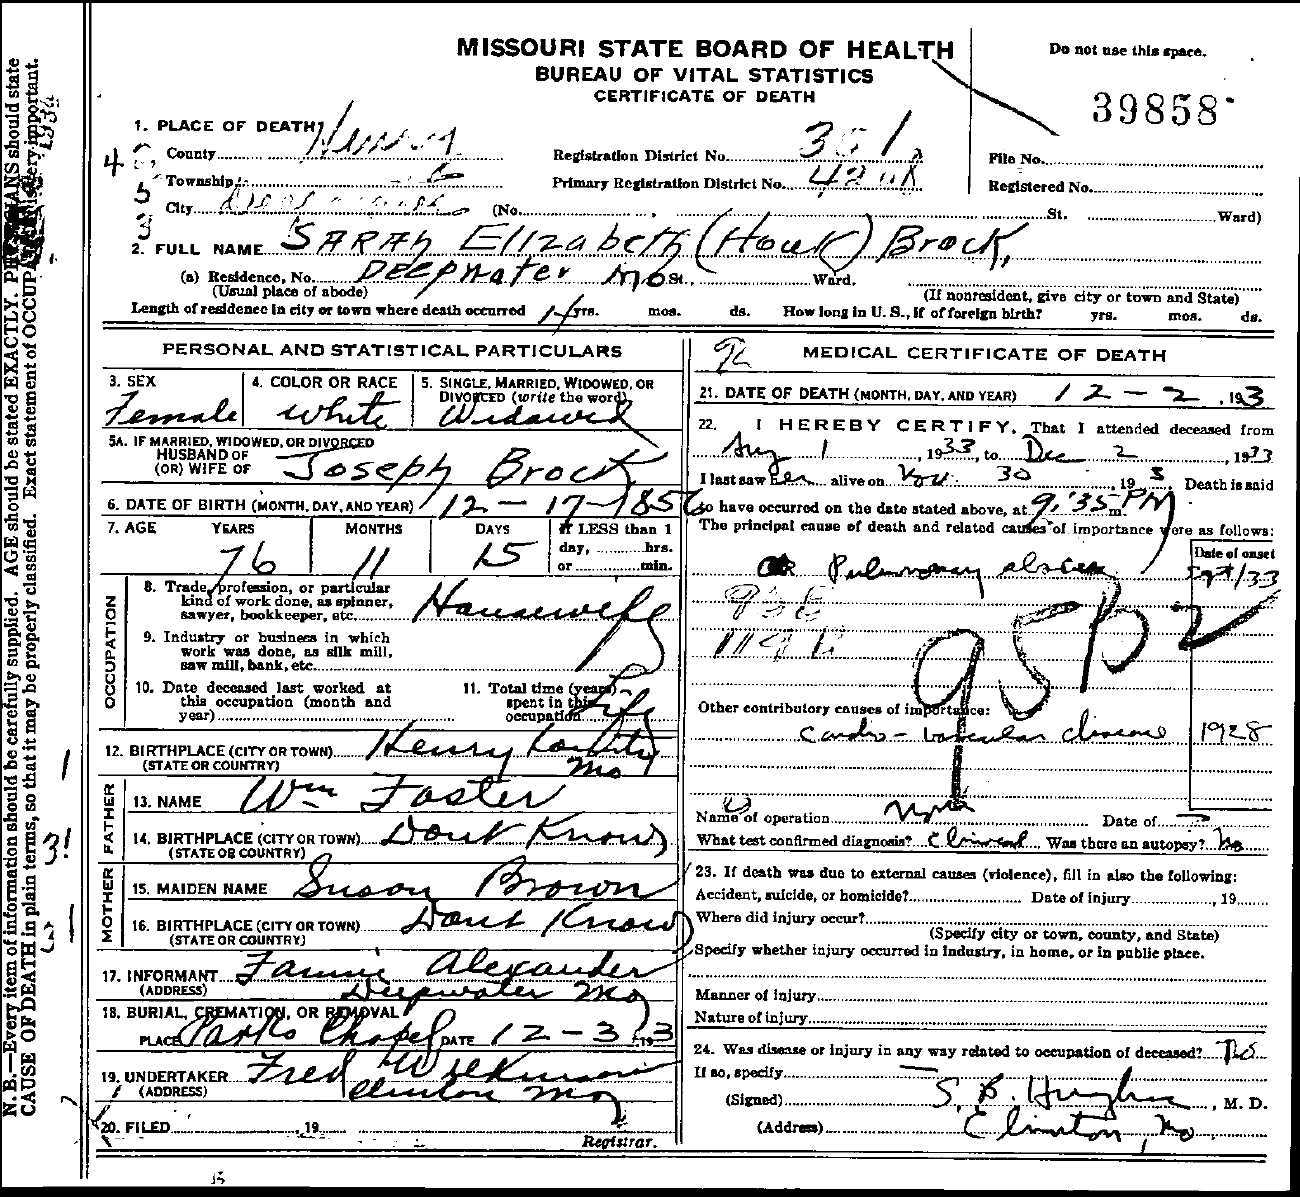 MISSOURI STATE BOARD OF HEALTH
BUREAU OF VITAL STATISTICS
CERTIFICATE OF DEATH
Do not use this space.
39858
1. PLACE OF DEATH
County Henry
Registration District No.
File No.
Township
Primary Registration District No.
Registered No.
City
(No. St. Ward)
2. FULL NAME SARAH Elizabeth (Houk) Brock,
(a) Residence, No. Deepwater Mo St. Ward.
(Usual place of abode)
(If nonresident, give city or town and State)
Length of residence in city or town where death occurred yrs. mos. ds. How long in U. S., if of foreign birth? yrs. mos. ds.
PERSONAL AND STATISTICAL PARTICULARS
3. SEX
Female
4. COLOR OR RACE
White
5. SINGLE, MARRIED, WIDOWED, OR
DIVORCED (write the word)
Widowed
5A. IF MARRIED, WIDOWED, OR DIVORCED
HUSBAND OF
(OR) WIFE OF Joseph Brock
6. DATE OF BIRTH (MONTH, DAY, AND YEAR) 12-17-1856
7. AGE YEARS MONTHS DAYS If LESS than 1
76 11 15 day, hrs.
or min.
OCCUPATION
8. Trade, profession, or particular
kind of work done, as spinner,
sawyer, bookkeeper, etc. Housewife
9. Industry or business in which
work was done, as silk mill,
saw mill, bank, etc.
10. Date deceased last worked at
this occupation (month and
year)
11. Total time (years)
spent in this
occupation Life
12. BIRTHPLACE (CITY OR TOWN) Henry County
(STATE OR COUNTRY) Mo
FATHER
13. NAME Wm Foster
14. BIRTHPLACE (CITY OR TOWN) Dont Know
(STATE OR COUNTRY)
MOTHER
15. MAIDEN NAME Susan Brown
16. BIRTHPLACE (CITY OR TOWN) Dont Know
(STATE OR COUNTRY)
17. INFORMANT Fannie Alexander
(ADDRESS) Deepwater Mo
18. BURIAL, CREMATION, OR REMOVAL
PLACE Parks Chapel DATE 12-3 193 3
19. UNDERTAKER Fred Wilkinson
(ADDRESS) Clinton Mo
20. FILED , 19
Registrar.
MEDICAL CERTIFICATE OF DEATH
21. DATE OF DEATH (MONTH, DAY, AND YEAR) 12-2 , 193 3
22. I HEREBY CERTIFY, That I attended deceased from
Aug 1 , 1933, to Dec 2 , 1933
I last saw her alive on Nov. 30 , 19 3 Death is said
to have occurred on the date stated above, at 9:35 m. PM
The principal cause of death and related causes of importance were as follows:
Date of onset
Pulmonary abscess Sept/33
95B
Other contributory causes of importance:
Cardio-vascular disease 1928
Name of operation None Date of
What test confirmed diagnosis? Clinical Was there an autopsy? No
23. If death was due to external causes (violence), fill in also the following:
Accident, suicide, or homicide? Date of injury , 19
Where did injury occur?
(Specify city or town, county, and State)
Specify whether injury occurred in industry, in home, or in public place.
Manner of injury
Nature of injury
24. Was disease or injury in any way related to occupation of deceased? No
If so, specify
(Signed) S. B. Hughes , M. D.
(Address) Clinton, Mo
N. B.—Every item of information should be carefully supplied. AGE should be stated EXACTLY. PHYSICIANS should state
CAUSE OF DEATH in plain terms, so that it may be properly classified. Exact statement of OCCUPATION is very important.